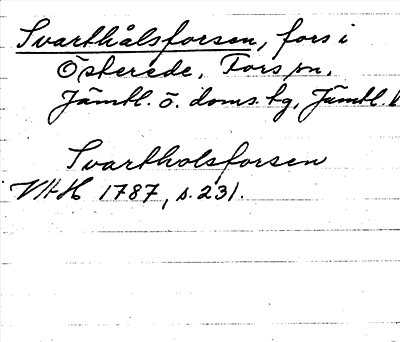 Svarthålsforsen, fors i
Österede, Fors sn,
Jämtl. ö. doms. tg, Jämtl.
Svartholsforsen
VHH 1787, s. 231.